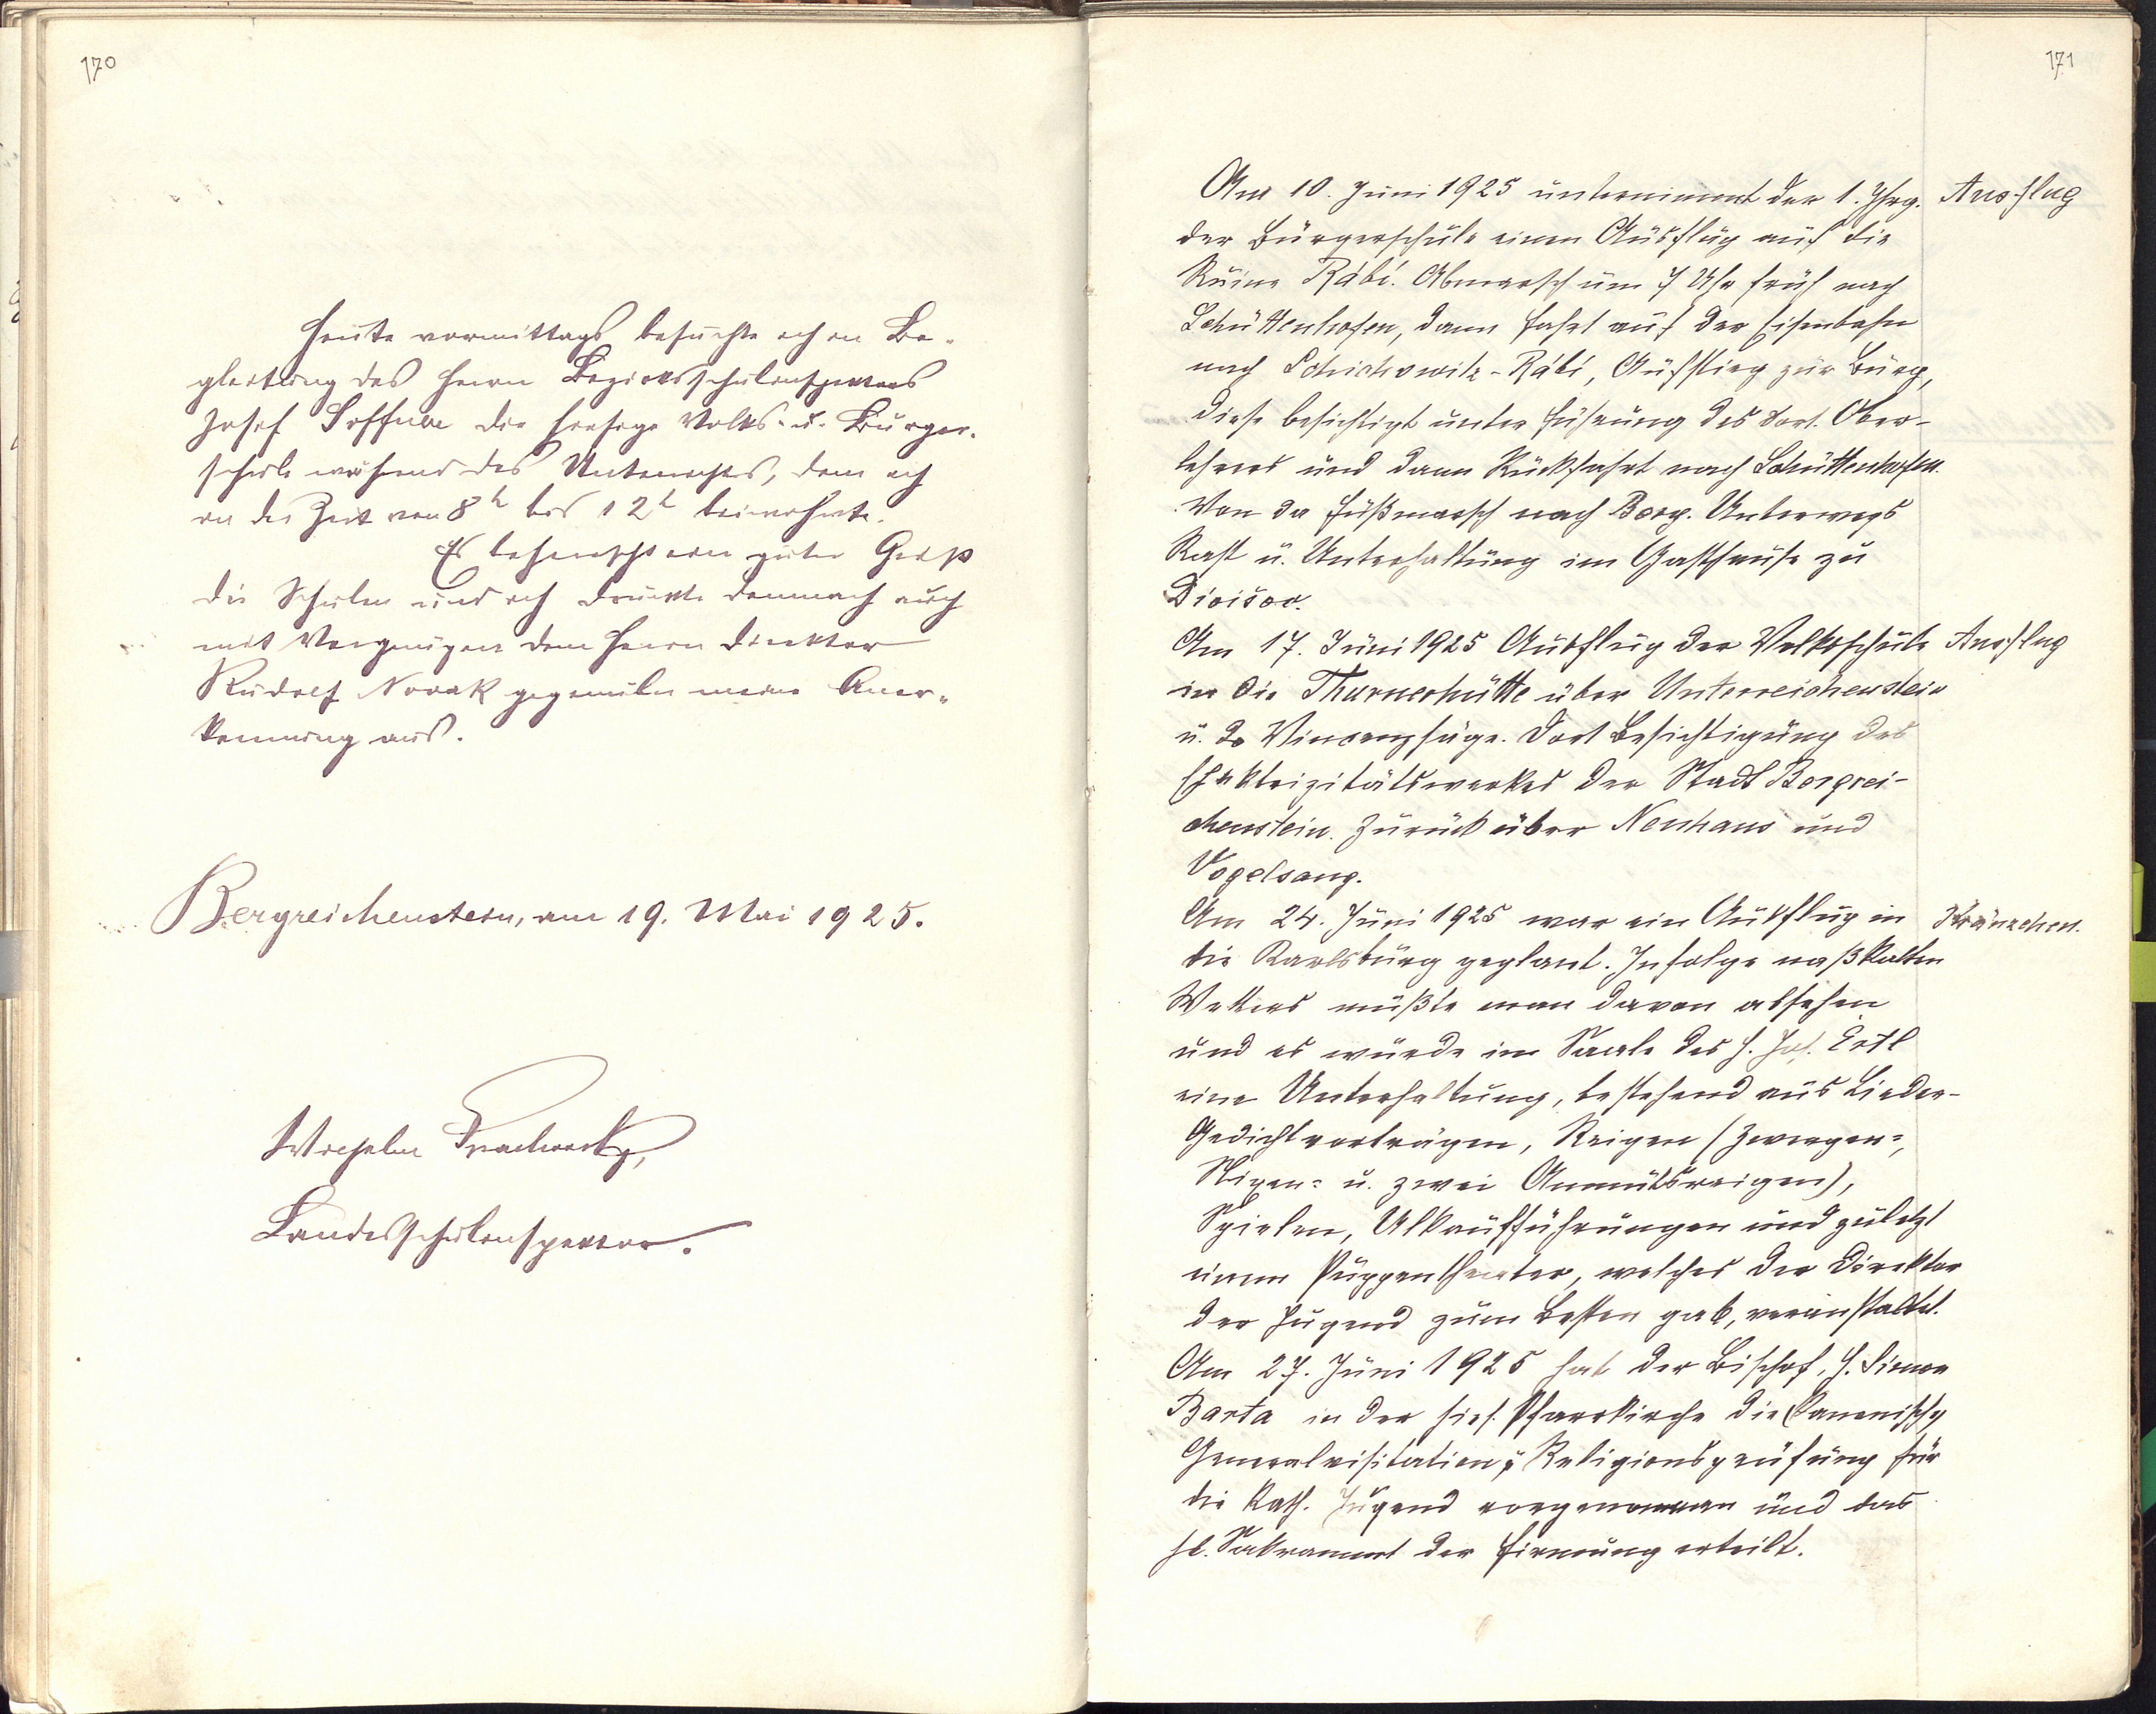 170
Heute vormittags besuchte ich in Be-
gleitung des Herrn Bezirksschulinspektors
Josef die hiesige Volks- u. Bürger-
schule während des Unterrichtes, dem ich
in der Zeit von 8h bis 12h beiwohnte.
Es beherrscht ein guter Geist
die Schulen und ich drückte demnach auch
mit Vergnügen dem Herrn Direktor
Rudolf Novak gegenüber meine Aner-
kennung aus.
Bergreichenstein, am 19. Mai 1925.
Wilhelm
Landesschulinspektor.
171
Am 10. Juni 1925 unternimmt der 1. Jhrg. Ausflug
der Bürgerschule einen Ausflug auf die
Ruine Rábí. Abmarsch um 7 Uhr früh nach
Schüttenhofen, dann Fahrt auf der Eisenbahn
nach Schichowitz-Rábí, Aufstieg zur Burg,
diese besichtigt unter Führung des dort. Ober-
lehrers und dann Rückfahrt nach Schüttenhofen.
Von da Fußmarsch nach Berg. Unterwegs
Rast u. Unterhaltung im Gasthause zu
Divišov.
Am 17. Juni 1925 Ausflug der Volksschule Ausflug
in die Thurnerhütte über Unterreichenstein
u. d. Vinzenzsäge. Dort Besichtigung des
Elektrizitätswerkes der Stadt Bergrei-
chenstein. Zurück über Neuhaus und
Vogelsang.
Am 24. Juni 1925 war ein Ausflug in Kränzchen.
die Karlsburg geplant. Infolge naßkalten
Wetters mußte man davon absehen
und es wurde im Saale des H. Jos. Ertl
eine Unterhaltung, bestehend aus Lieder-
Gedichtvorträgen, Reigen (Zwergen-,
u. zwei Anmutsreigen),
Spielen, Ulkaufführungen und zuletzt
einem Puppentheater, welches der Direktor
der Jugend zum Besten gab, veranstaltet.
Am 27. Juni 1925 hat der Bischof, H. Simon
Barta in der hies. Pfarrkirche die kanonische
Generalvisitation, Religionsprüfung für
die kath. Jugend vorgenommen und das
hl. Sakrament der Firmung erteilt.